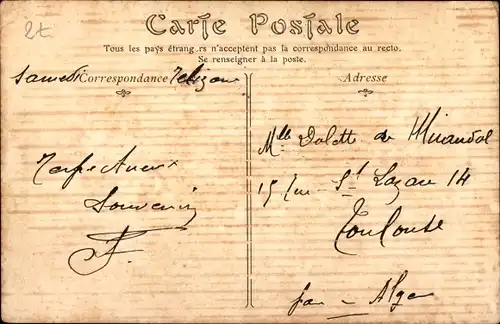 2t
Carte Postale
Tous les pays étrang.rs n'acceptent pas la correspondance au recto.
Se renseigner à la poste.
Samedi Correspondance
Adresse
Mlle Dolette de Mirandol
Respectueux
Souvenir
F.
15 Rue St Lazare 14
Toulouse
par - Alger